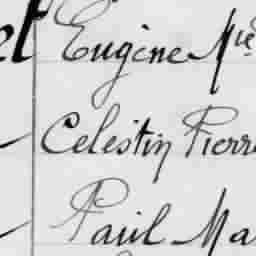 et Eugène Mie
Celestin Pierre
Paul Ma